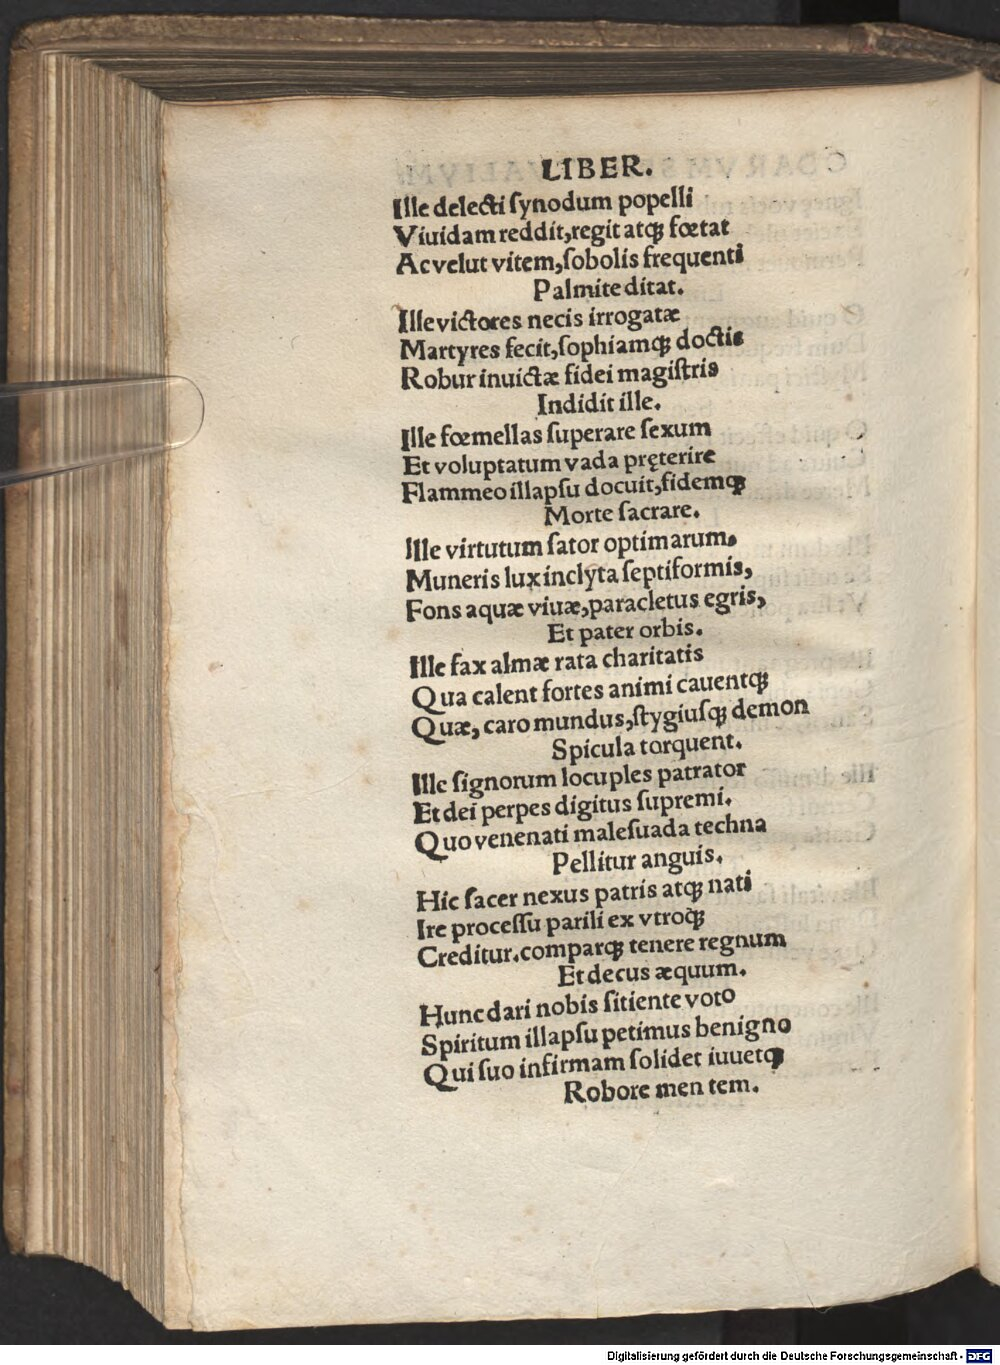 LIBER.
Ille delecti ſynodum popelli
Viuidam reddit,regit atqꝫ fœtat
Ac velut vitem,ſobolis frequenti
Palmite ditat.
Ille victores necis irrogatæ
Martyres fecit,ſophiamqꝫ doctis
Robur inuictæ fidei magiſtris
Indidit ille.
Ille fœmellas ſuperare ſexum
Et voluptatum vada pręterire
Flammeo illapſu docuit,fidemqꝫ
Morte ſacrare.
Ille virtutum ſator optimarum,
Muneris lux inclyta ſeptiformis,
Fons aquæ viuæ,paracletus egris,
Et pater orbis.
Ille fax almæ rata charitatis
Qua calent fortes animi cauentqꝫ
Quæ, caro mundus,ſtygiuſqꝫ demon
Spicula torquent.
Ille ſignorum locuples patrator
Et dei perpes digitus ſupremi.
Quo venenati maleſuada techna
Pellitur anguis.
Hic ſacer nexus patris atqꝫ nati
Ire proceſſu parili ex vtroqꝫ
Creditur.comparqꝫ tenere regnum
Et decus æquum.
Hunc dari nobis ſitiente voto
Spiritum illapſu petimus benigno
Qui ſuo infirmam ſolidet iuuetqꝫ
Robore men tem.
Digitalisierung gefördert durch die Deutsche Forschungsgemeinschaft - DFG